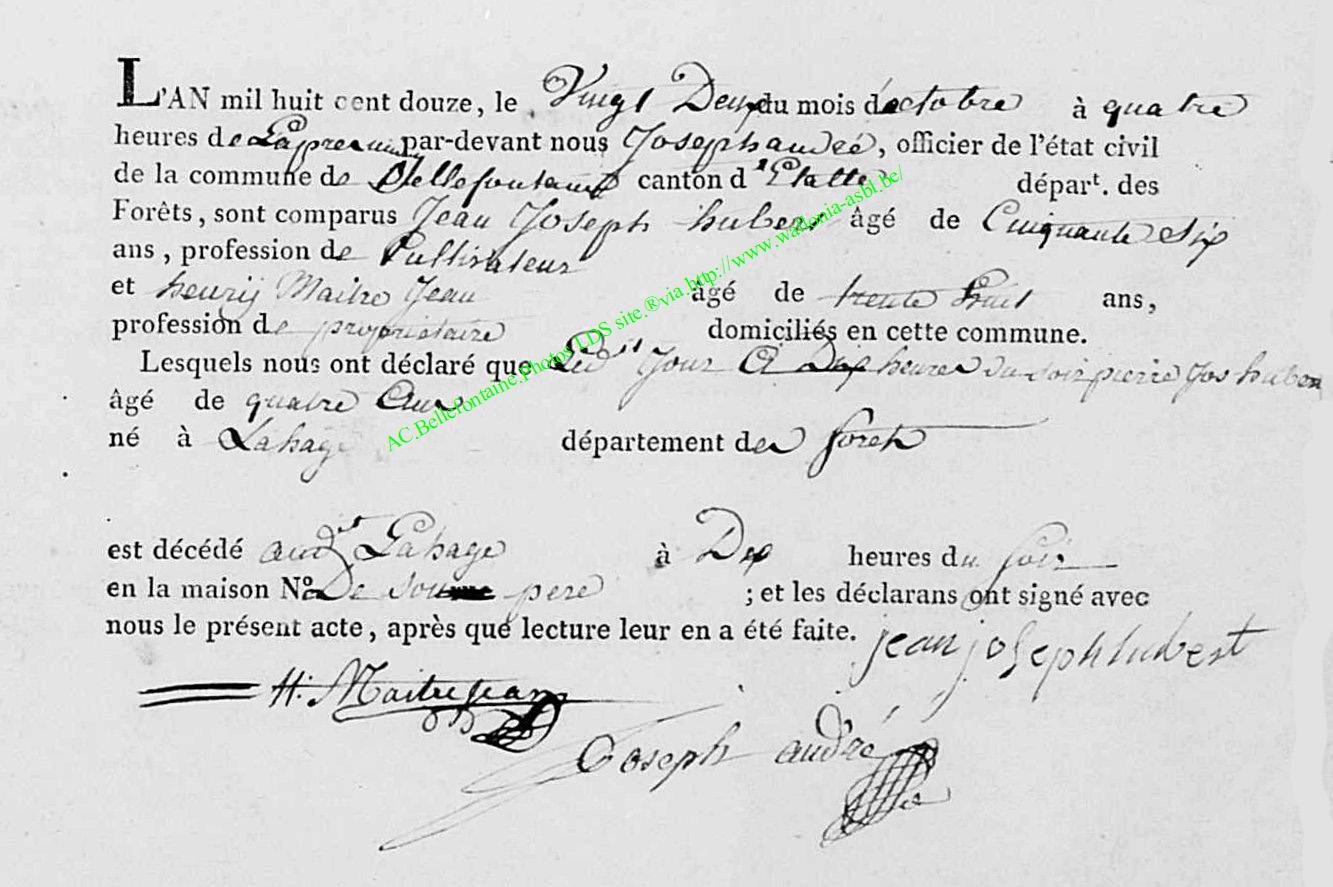 L'AN mil huit cent douze, le Vingt Deux du mois doctobre à quatre
heures de Lapremidi par-devant nous Joseph andré, officier de l'état civil
de la commune de Bellefontaine canton d'Etalle départ. des
Forêts, sont comparus Jean Joseph hubert âgé de Cinquante Six
ans, profession de Cultivateur
et henrij Maitre Jean âgé de trente huit ans,
profession de propriétaire domiciliés en cette commune.
Lesquels nous ont déclaré que Led.t Jour a Dix heures du soir pierre Jos hubert
âgé de quatre Ans
né à Lahage département des forets
est décédé aud.t Lahage à Dix heures du soir
en la maison No. De son pere ; et les déclarans ont signé avec
nous le présent acte, après que lecture leur en a été faite. jean joseph hubert
H: Maitrejean
Joseph andré
AC.Bellefontaine.Photos LDS site.®via.http://www.wallonia-asbl.be/